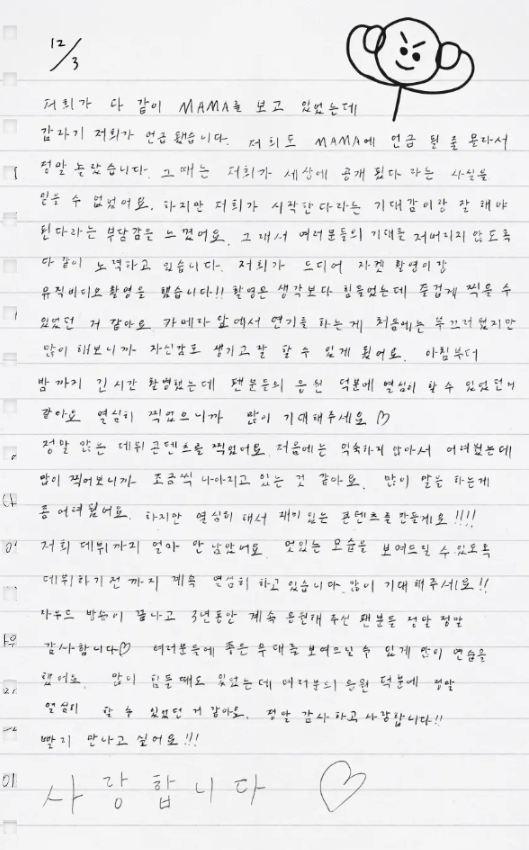 12/3
저희가 다 같이 MAMA를 보고 있었는데
갑자기 저희가 언급 됐습니다. 저희도 MAMA에 언급 될 줄 몰라서
정말 놀랐습니다. 그때는 저희가 세상에 공개 됐다 라는 사실을
믿을 수 없었어요. 하지만 저희가 시작한다라는 기대감이랑 잘 해야
된다라는 부담감을 느꼈어요. 그래서 여러분들의 기대를 저버리지 않도록
다 같이 노력하고 있습니다. 저희가 드디어 자켓 촬영이랑
뮤직비디오 촬영을 했습니다!! 촬영은 생각보다 힘들었는데 즐겁게 찍을 수
있었던 거 같아요 카메라 앞에서 연기를 하는게 처음에는 부끄러웠지만
많이 해보니까 자신감도 생기고 잘 할 수 있게 됐어요. 아침부터
밤까지 긴 시간 촬영했는데 팬분들의 응원 덕분에 열심히 할 수 있었던거
같아요 열심히 찍었으니까 많이 기대해주세요 ♡
정말 많은 데뷔 콘텐츠를 찍었어요. 처음에는 익숙하지 않아서 어려웠는데
많이 찍어보니까 조금씩 나아지고 있는 것 같아요. 많이 말을 하는게
좀 어려웠어요. 하지만 열심히 해서 재미 있는 콘텐츠를 만들게요!!!!
저희 데뷔까지 얼마 안 남았어요. 멋있는 모습을 보여드릴 수 있도록
데뷔하기 전 까지 계속 열심히 하고 있습니다. 많이 기대해주세요!!
라우드 방송이 끝나고 3년동안 계속 응원해 주신 팬분들 정말 정말
감사합니다♡ 여러분들에 좋은 무대를 보여드릴 수 있게 많이 연습을
했어요. 많이 힘들 때도 있었는데 여러분의 응원 덕분에 정말
열심히 할 수 있었던 거 같아요. 정말 감사하고 사랑합니다!!
빨리 만나고 싶어요!!!
사랑합니다 ♡